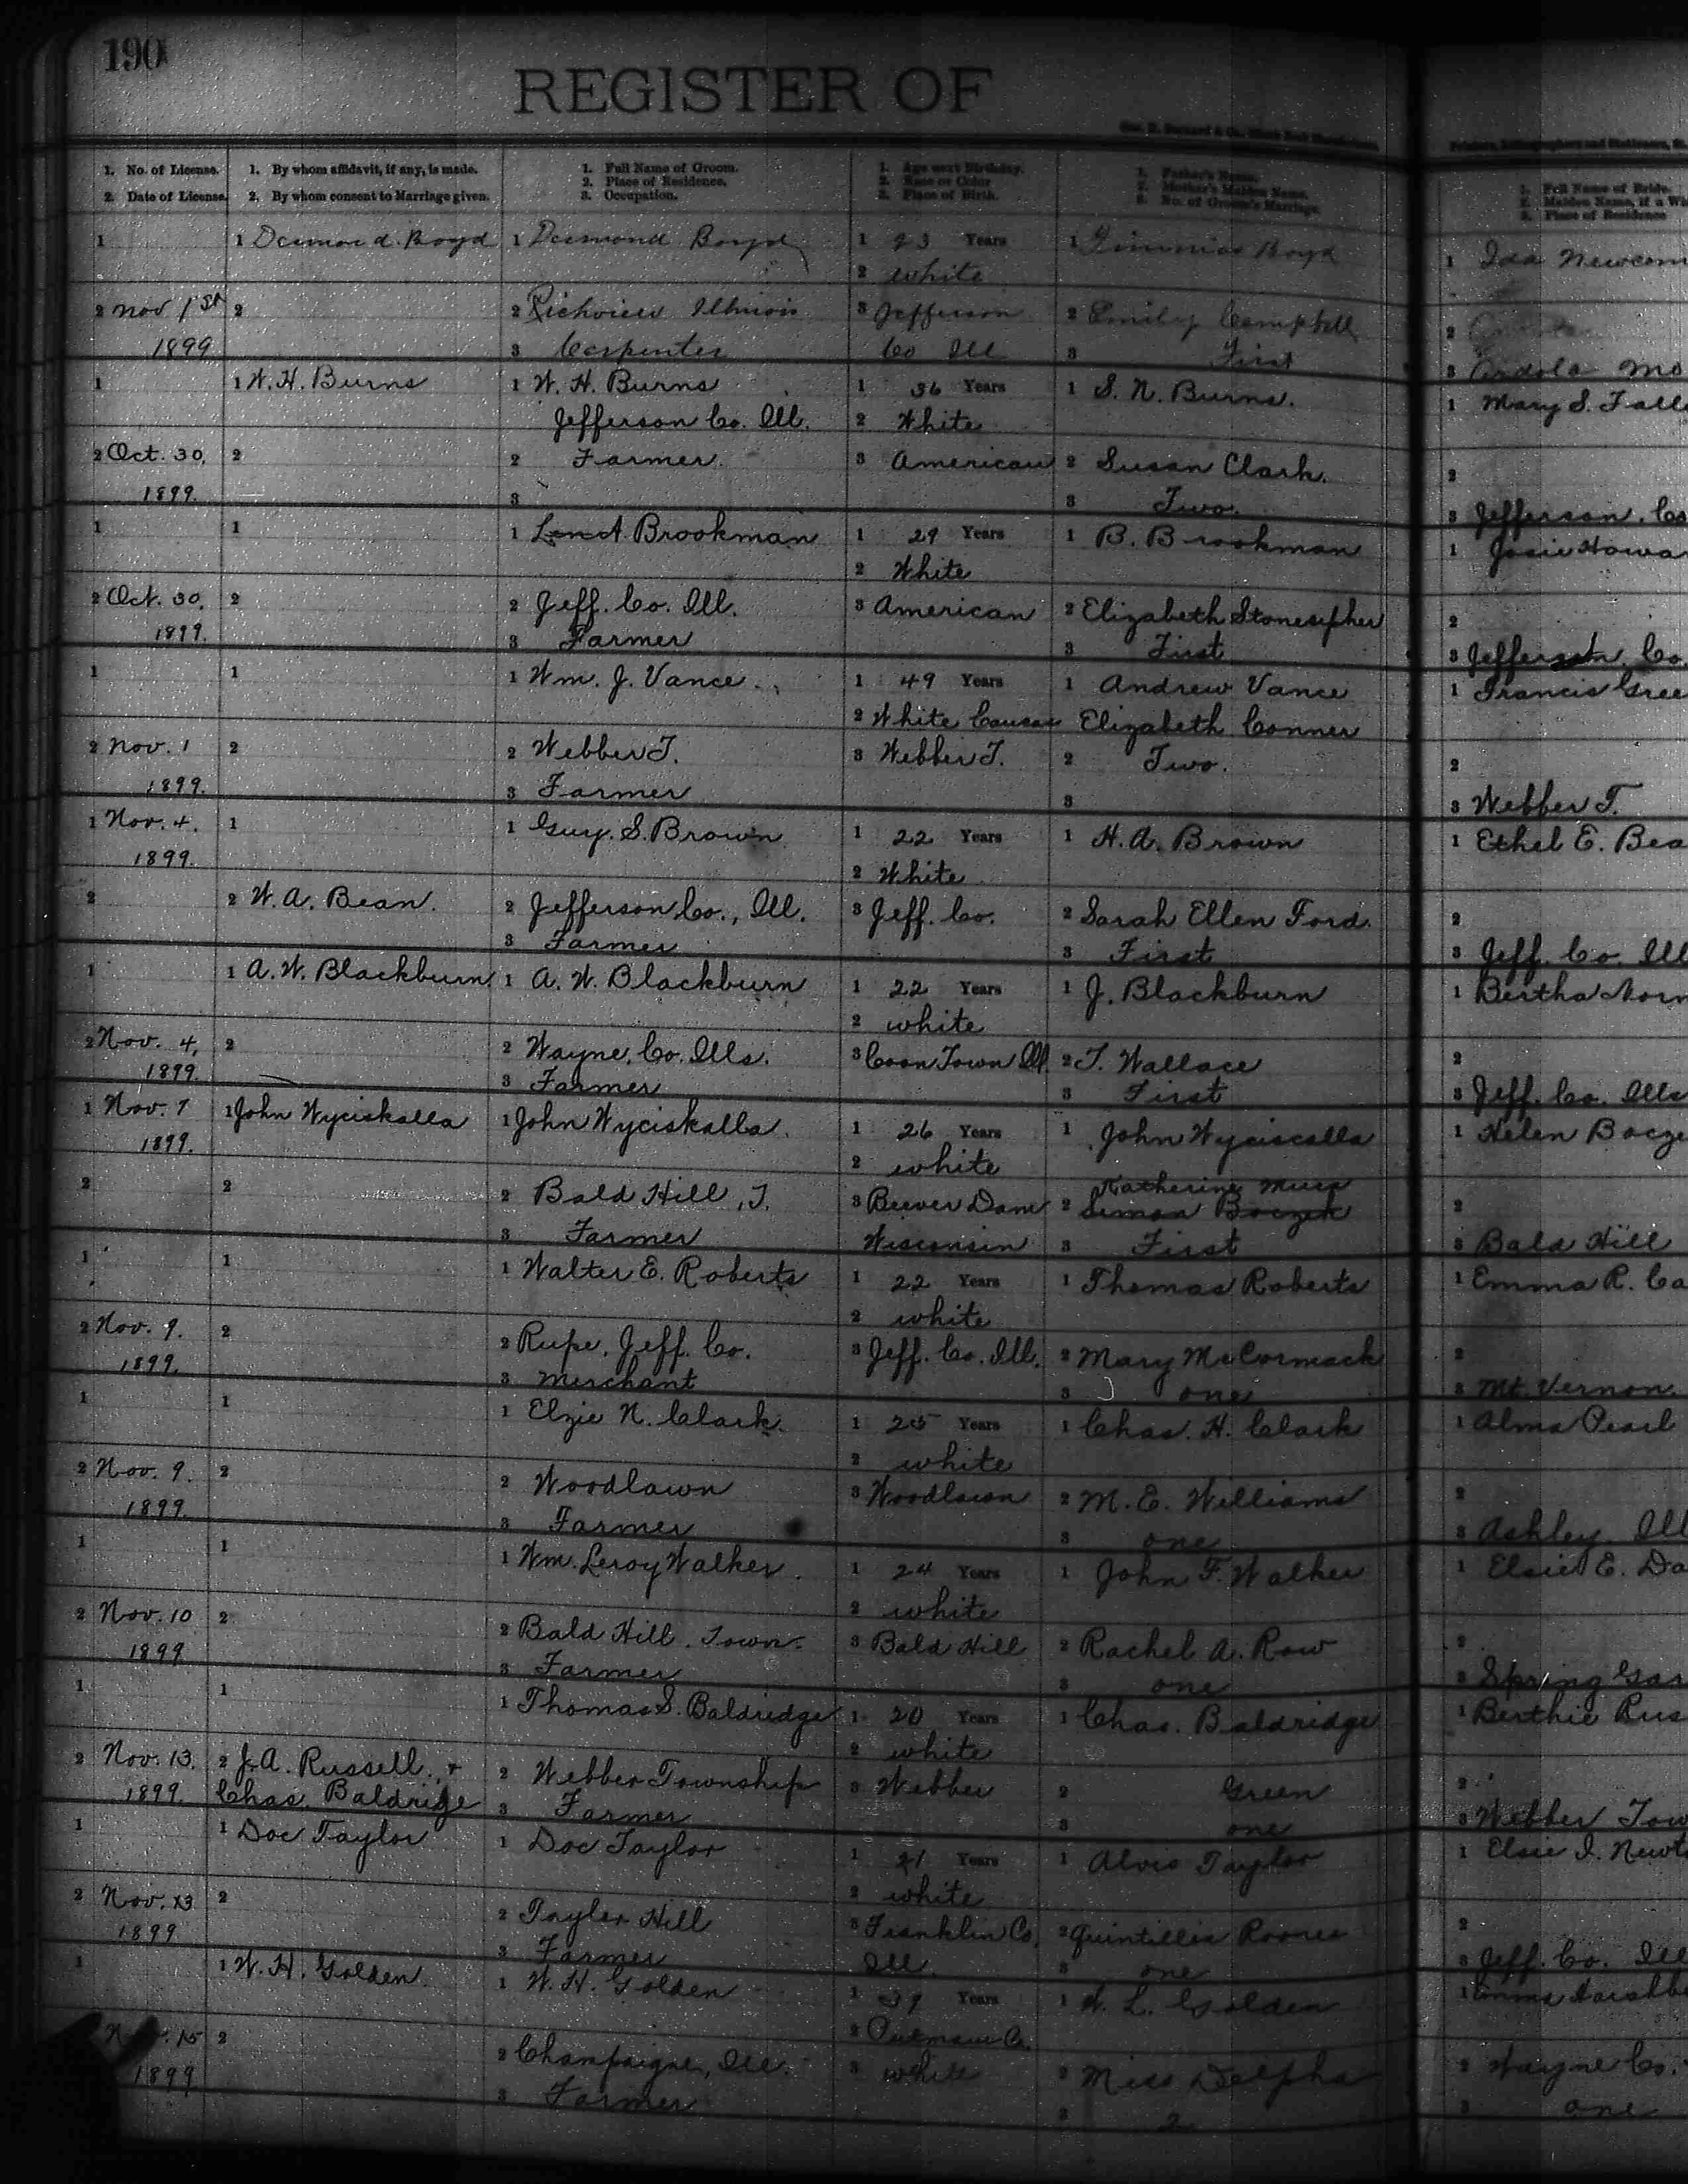 190
REGISTER OF
1. No. of License.
2. Date of License.
1. By whom affidavit, if any, is made.
2. By whom consent to Marriage given.
1. Full Name of Groom.
2. Place of Residence.
3. Occupation.
1. Age next Birthday.
2. Race or Color
3. Place of Birth.
1. Father's Name.
2. Mother's Maiden Name.
3. No. of Groom's Marriage.
1. Full Name of Bride.
2. Maiden Name, if a Wi
3. Place of Residence
1 1 Desmond Boyd 1 Desmond Boyd 1 23 Years 1 Boyd 1 Ida Newcom
2 white
2 Nov 1st 2 2 Richview Illinois 3 Jefferson 2 Emily Campbell 2
1899 3 Carpenter Co Ill 3 First 3 Ardola Mo
1 1 W. H. Burns 1 W. H. Burns 1 36 Years 1 S. N. Burns. 1 Mary S. Fall
Jefferson Co. Ill. 2 White
2 Oct. 30, 2 2 Farmer. 3 American 2 Susan Clark. 2
1899. 3 3 Two. 3 Jefferson. Co
1 1 1 Brookman 1 29 Years 1 B. Brookman 1 Josie Howa
2 White
2 Oct. 30, 2 2 Jeff. Co. Ill. 3 American 2 Elizabeth Stonesipher 2
1899. 3 Farmer 3 First 3 Jefferson Co.
1 1 1 Wm. J. Vance 1 49 Years 1 Andrew Vance 1 Francis Gree
2 White Caucas Elizabeth Conner
2 Nov. 1 2 2 Webber T. 3 Webber T. 2 Two. 2
1899. 3 Farmer 3 3 Webber T.
1 Nov. 4. 1 1 Guy. S. Brown 1 22 Years 1 H. A. Brown 1 Ethel E. Bea
1899. 2 White
2 2 W. A. Bean. 2 Jefferson Co., Ill. 3 Jeff. Co. 2 Sarah Ellen Ford. 2
3 Farmer 3 First 3 Jeff. Co. Ill
1 1 A. W. Blackburn 1 A. W. Blackburn 1 22 Years 1 J. Blackburn 1 Bertha Norm
2 white
2 Nov. 4, 2 2 Wayne, Co. Ills. 3 Coon Town Ill. 2 T. Wallace 2
1899. 3 Farmer 3 First 3 Jeff. Co. Ills
1 Nov. 7 1 John Wyciskalla 1 John Wyciskalla. 1 26 Years 1 John Wyciscalla 1 Helen Bocze
1899. 2 white
Katherine
2 2 2 Bald Hill, T. 3 Beever Dam 2 Simon Boczek 2
3 Farmer Wisconsin 3 First 3 Bald Hill
1 1 1 Walter E. Roberts 1 22 Years 1 Thomas Roberts 1 Emma R. Ca
2 white
2 Nov. 9. 2 2 Rupe, Jeff. Co. 3 Jeff. Co. Ill. 2 Mary McCormack 2
1899. 3 Merchant 3 one 3 Mt. Vernon.
1 1 1 Elzie N. Clark. 1 25 Years 1 Chas. H. Clark 1 Alma Pearl
2 white
2 Nov. 9. 2 2 Woodlawn 3 Woodlawn 2 M. E. Williams 2
1899. 3 Farmer 3 one 3 Ashley, Ill
1 1 1 Wm. Leroy Walker. 1 24 Years 1 John F. Walker 1 Elsie E. Da
2 white
2 Nov. 10 2 2 Bald Hill. Town. 3 Bald Hill 2 Rachel A. Row 2
1899 3 Farmer 3 one 3 Spring Gar
1 1 1 Thomas S. Baldridge 1 20 Years 1 Chas. Baldridge 1 Berthie Rus
2 white
2 Nov. 13, 2 J. A. Russell, + 2 Webber Township 3 Webber 2 Green 2
1899. Chas. Baldridge 3 Farmer 3 one 3 Webber Tow
1 1 Doc Taylor 1 Doc Taylor 1 21 Years 1 Alvis Taylor 1 Elsie I. Newt
2 white
2 Nov. 13 2 2 Tayler Hill 3 Franklin Co, 2 Quintillia 2
1899 3 Farmer Ill. 3 one 3 Jeff. Co. Ill
1 1 W. H. Golden. 1 W. H. Golden 1 39 Years 1 W. L. Golden 1 Emma
2 Putnam Co.
15 2 2 Champaign, Ill. 3 white 2 Miss Delpha 2 Wayne Co.
1899 3 Farmer 3 2 3 one